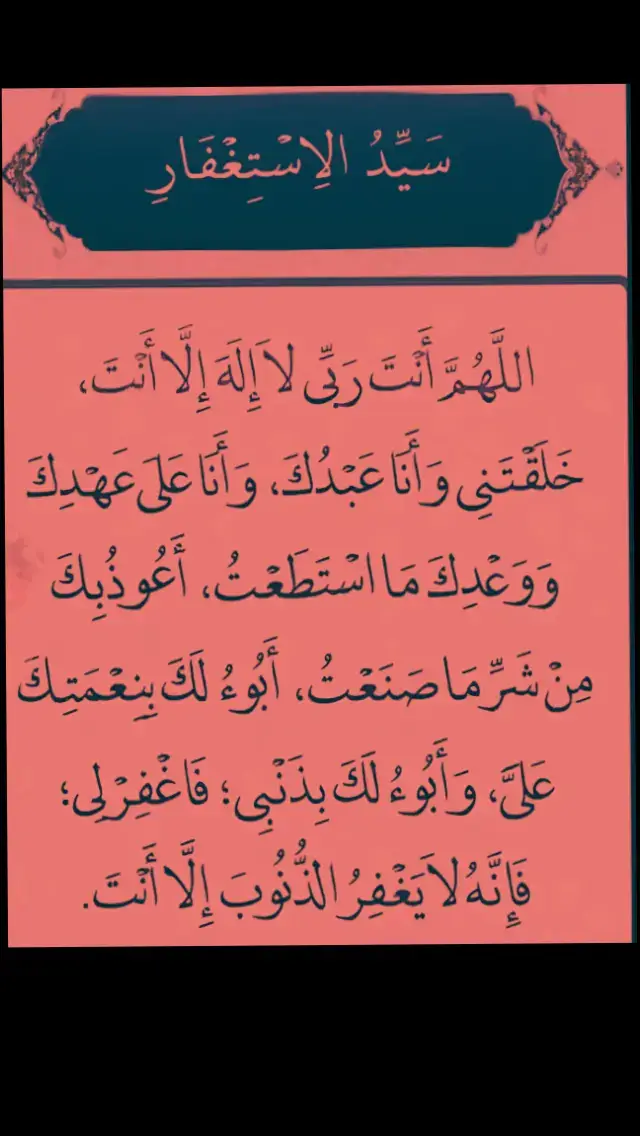 سَيِّدُ الِاسْتِغْفَارِ
اللَّهُمَّ أَنْتَ رَبِّى لاَ إِلَهَ إِلَّا أَنْتَ،
خَلَقْتَنِى وَأَنَا عَبْدُكَ، وَأَنَا عَلَى عَهْدِكَ
وَوَعْدِكَ مَا اسْتَطَعْتُ، أَعُوذُ بِكَ
مِنْ شَرِّ مَا صَنَعْتُ، أَبُوءُ لَكَ بِنِعْمَتِكَ
عَلَىَّ، وَأَبُوءُ لَكَ بِذَنْبِى؛ فَاغْفِرْ لِى؛
فَإِنَّهُ لاَ يَغْفِرُ الذُّنُوبَ إِلَّا أَنْتَ.